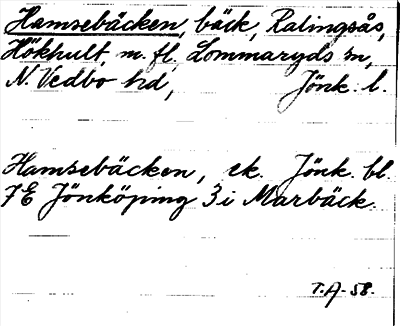 Hamsebäcken, bäck, Ralingsås,
Hökhult, m. fl. Lommaryds sn,
N. Vedbo hd, Jönk. l.
Hamsebäcken, ek. Jönk. bl
7E Jönköping 3i Marbäck.
T.A-58.